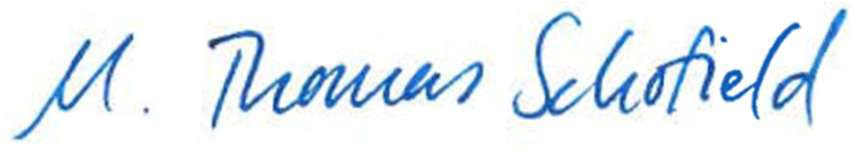 M. Thomas Schofield